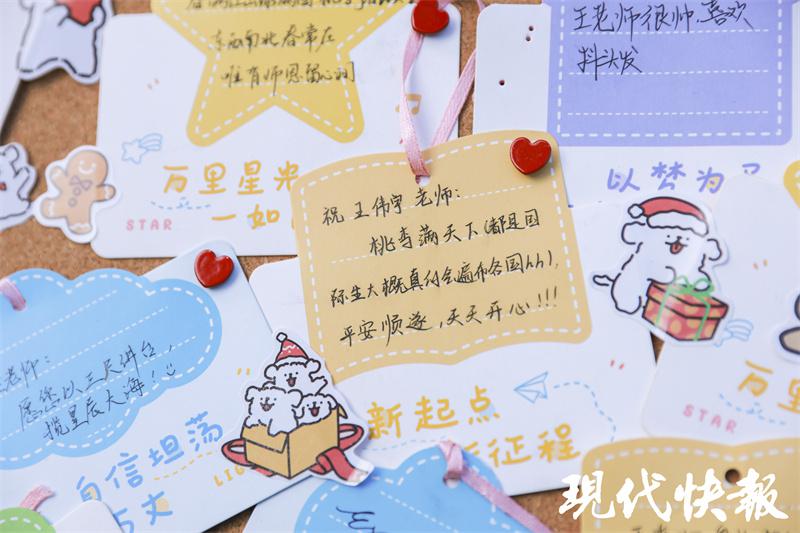 东西南北春常在
唯有师恩留心间
万里星光
一如
STAR
王老师很帅，喜欢
抖头发
以梦为马
祝王伟宇老师：
桃李满天下（都是国
际生大概真的会遍布各国hh），
平安顺遂，天天开心！！！
新起点
新征程
老师：
愿您以三尺讲台，
揽星辰大海！
自信坦荡
LIG
万丈
万里
STAR
现代快報